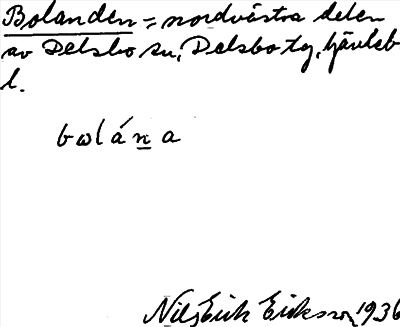 Bolanden = nordvästra delen
av Delsbo sn, Delsbo tg, Gävleb
l.
bωlána
Nils Erik Eriksson, 1936